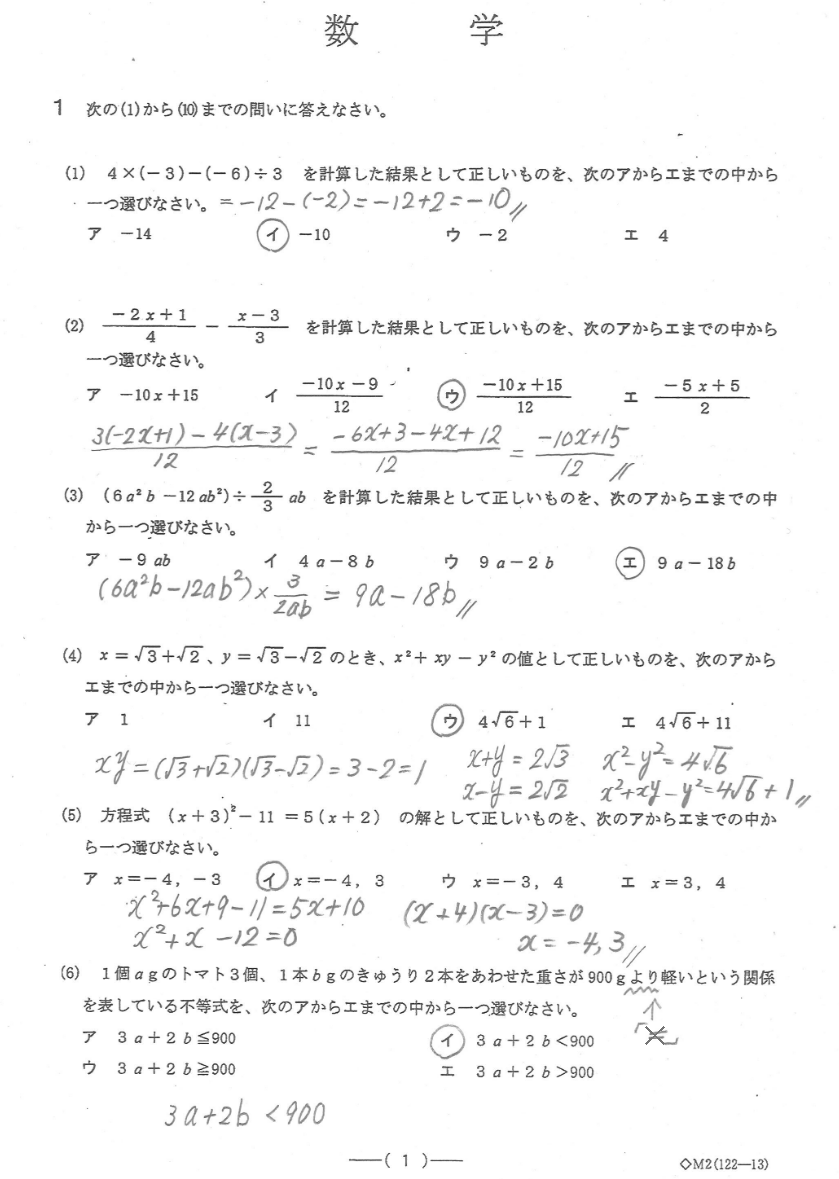 数 学
1 次の(1)から(10)までの問いに答えなさい。
(1) 4×(−3)−(−6)÷3 を計算した結果として正しいものを、次のアからエまでの中から
一つ選びなさい。 = −12−(−2)= −12+2 = −10 //
ア −14 イ −10 ウ −2 エ 4
(2) (−2x+1)/4 − (x−3)/3 を計算した結果として正しいものを、次のアからエまでの中から
一つ選びなさい。
ア −10x+15 イ (−10x−9)/12 ウ (−10x+15)/12 エ (−5x+5)/2
(3(−2x+1)−4(x−3))/12 = (−6x+3−4x+12)/12 = (−10x+15)/12 //
(3) (6a²b−12ab²)÷2/3 ab を計算した結果として正しいものを、次のアからエまでの中
から一つ選びなさい。
ア −9ab イ 4a−8b ウ 9a−2b エ 9a−18b
(6a²b−12ab²)× 3/2ab = 9a−18b //
(4) x=√3+√2、y=√3−√2のとき、x²+xy−y²の値として正しいものを、次のアから
エまでの中から一つ選びなさい。
ア 1 イ 11 ウ 4√6+1 エ 4√6+11
xy=(√3+√2)(√3−√2)=3−2=1 x+y=2√3 x²−y²=4√6
x−y=2√2 x²+xy−y²=4√6+1 //
(5) 方程式 (x+3)²−11=5(x+2) の解として正しいものを、次のアからエまでの中か
ら一つ選びなさい。
ア x=−4, −3 イ x=−4, 3 ウ x=−3, 4 エ x=3, 4
x²+6x+9−11=5x+10 (x+4)(x−3)=0
x²+x−12=0 x=−4,3 //
(6) 1個agのトマト3個、1本bgのきゅうり2本をあわせた重さが900gより軽いという関係
を表している不等式を、次のアからエまでの中から一つ選びなさい。
ア 3a+2b≦900 イ 3a+2b<900
ウ 3a+2b≧900 エ 3a+2b>900
3a+2b<900
—( 1 )— ◇M2(122—13)